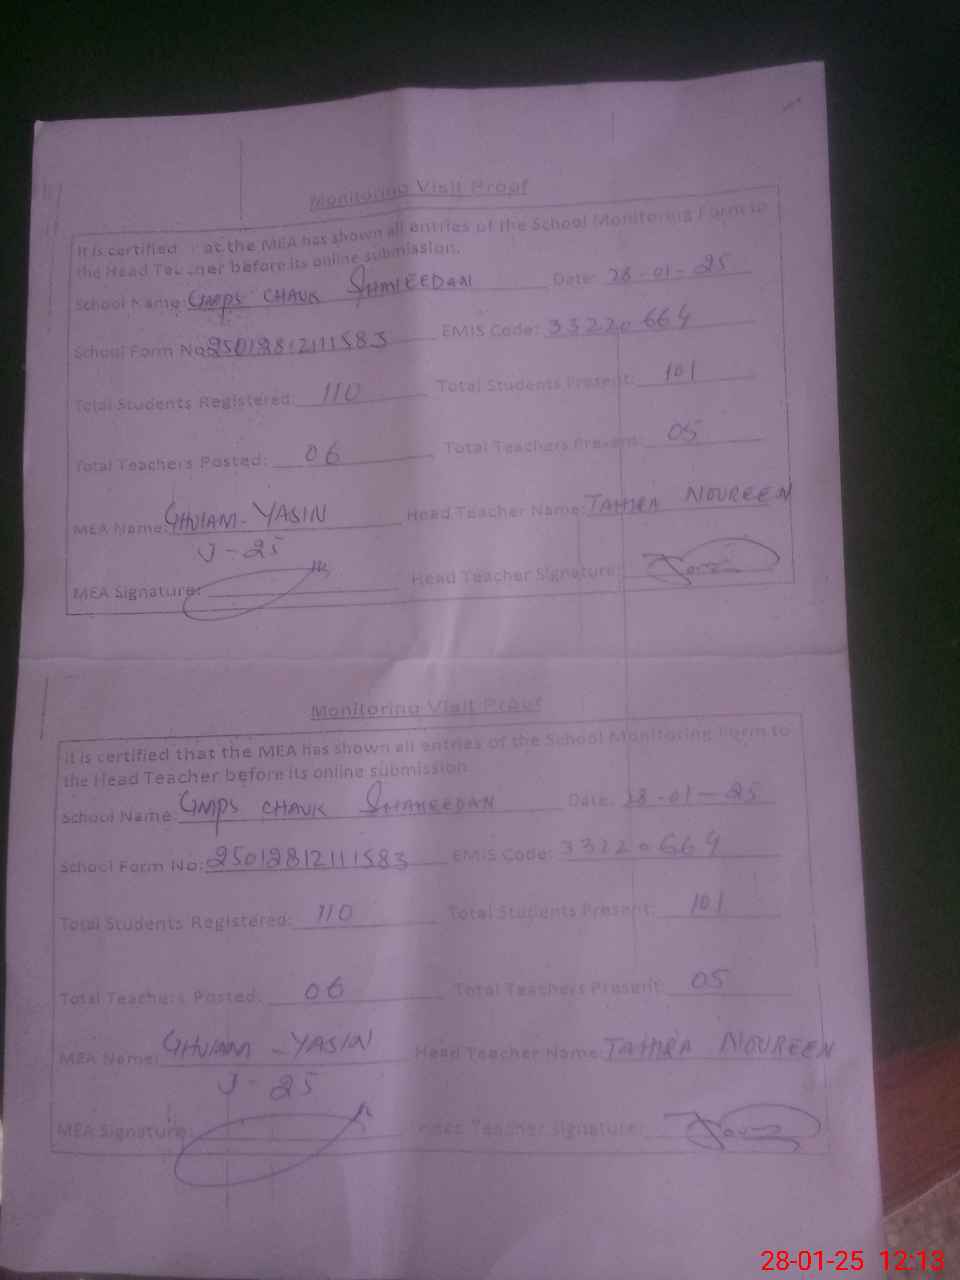 Monitoring Visit Proof
It is certified at the MEA has shown all entries of the School Monitoring Form to
the Head Teacher before its online submission.
School Name: GMPS CHAUK SHAHEEDAN Date: 28-01-25
School Form No: 25012812111583 EMIS Code: 33220664
Total Students Registered: 110 Total Students Present: 101
Total Teachers Posted: 06 Total Teachers Present: 05
MEA Name: GHULAM-YASIN Head Teacher Name: TAHIRA NOUREEN
J-25
MEA Signature: Head Teacher Signature:
Monitoring Visit Proof
It is certified that the MEA has shown all entries of the School Monitoring Form to
the Head Teacher before its online submission
School Name: GMPS CHAUK SHAHEEDAN Date: 28-01-25
School Form No: 25012812111583 EMIS Code: 33220664
Total Students Registered: 110 Total Students Present: 101
Total Teachers Posted: 06 Total Teachers Present: 05
MEA Name: GHULAM-YASIN Head Teacher Name: TAHIRA NOUREEN
J-25
MEA Signature: Head Teacher Signature:
28-01-25 12:13